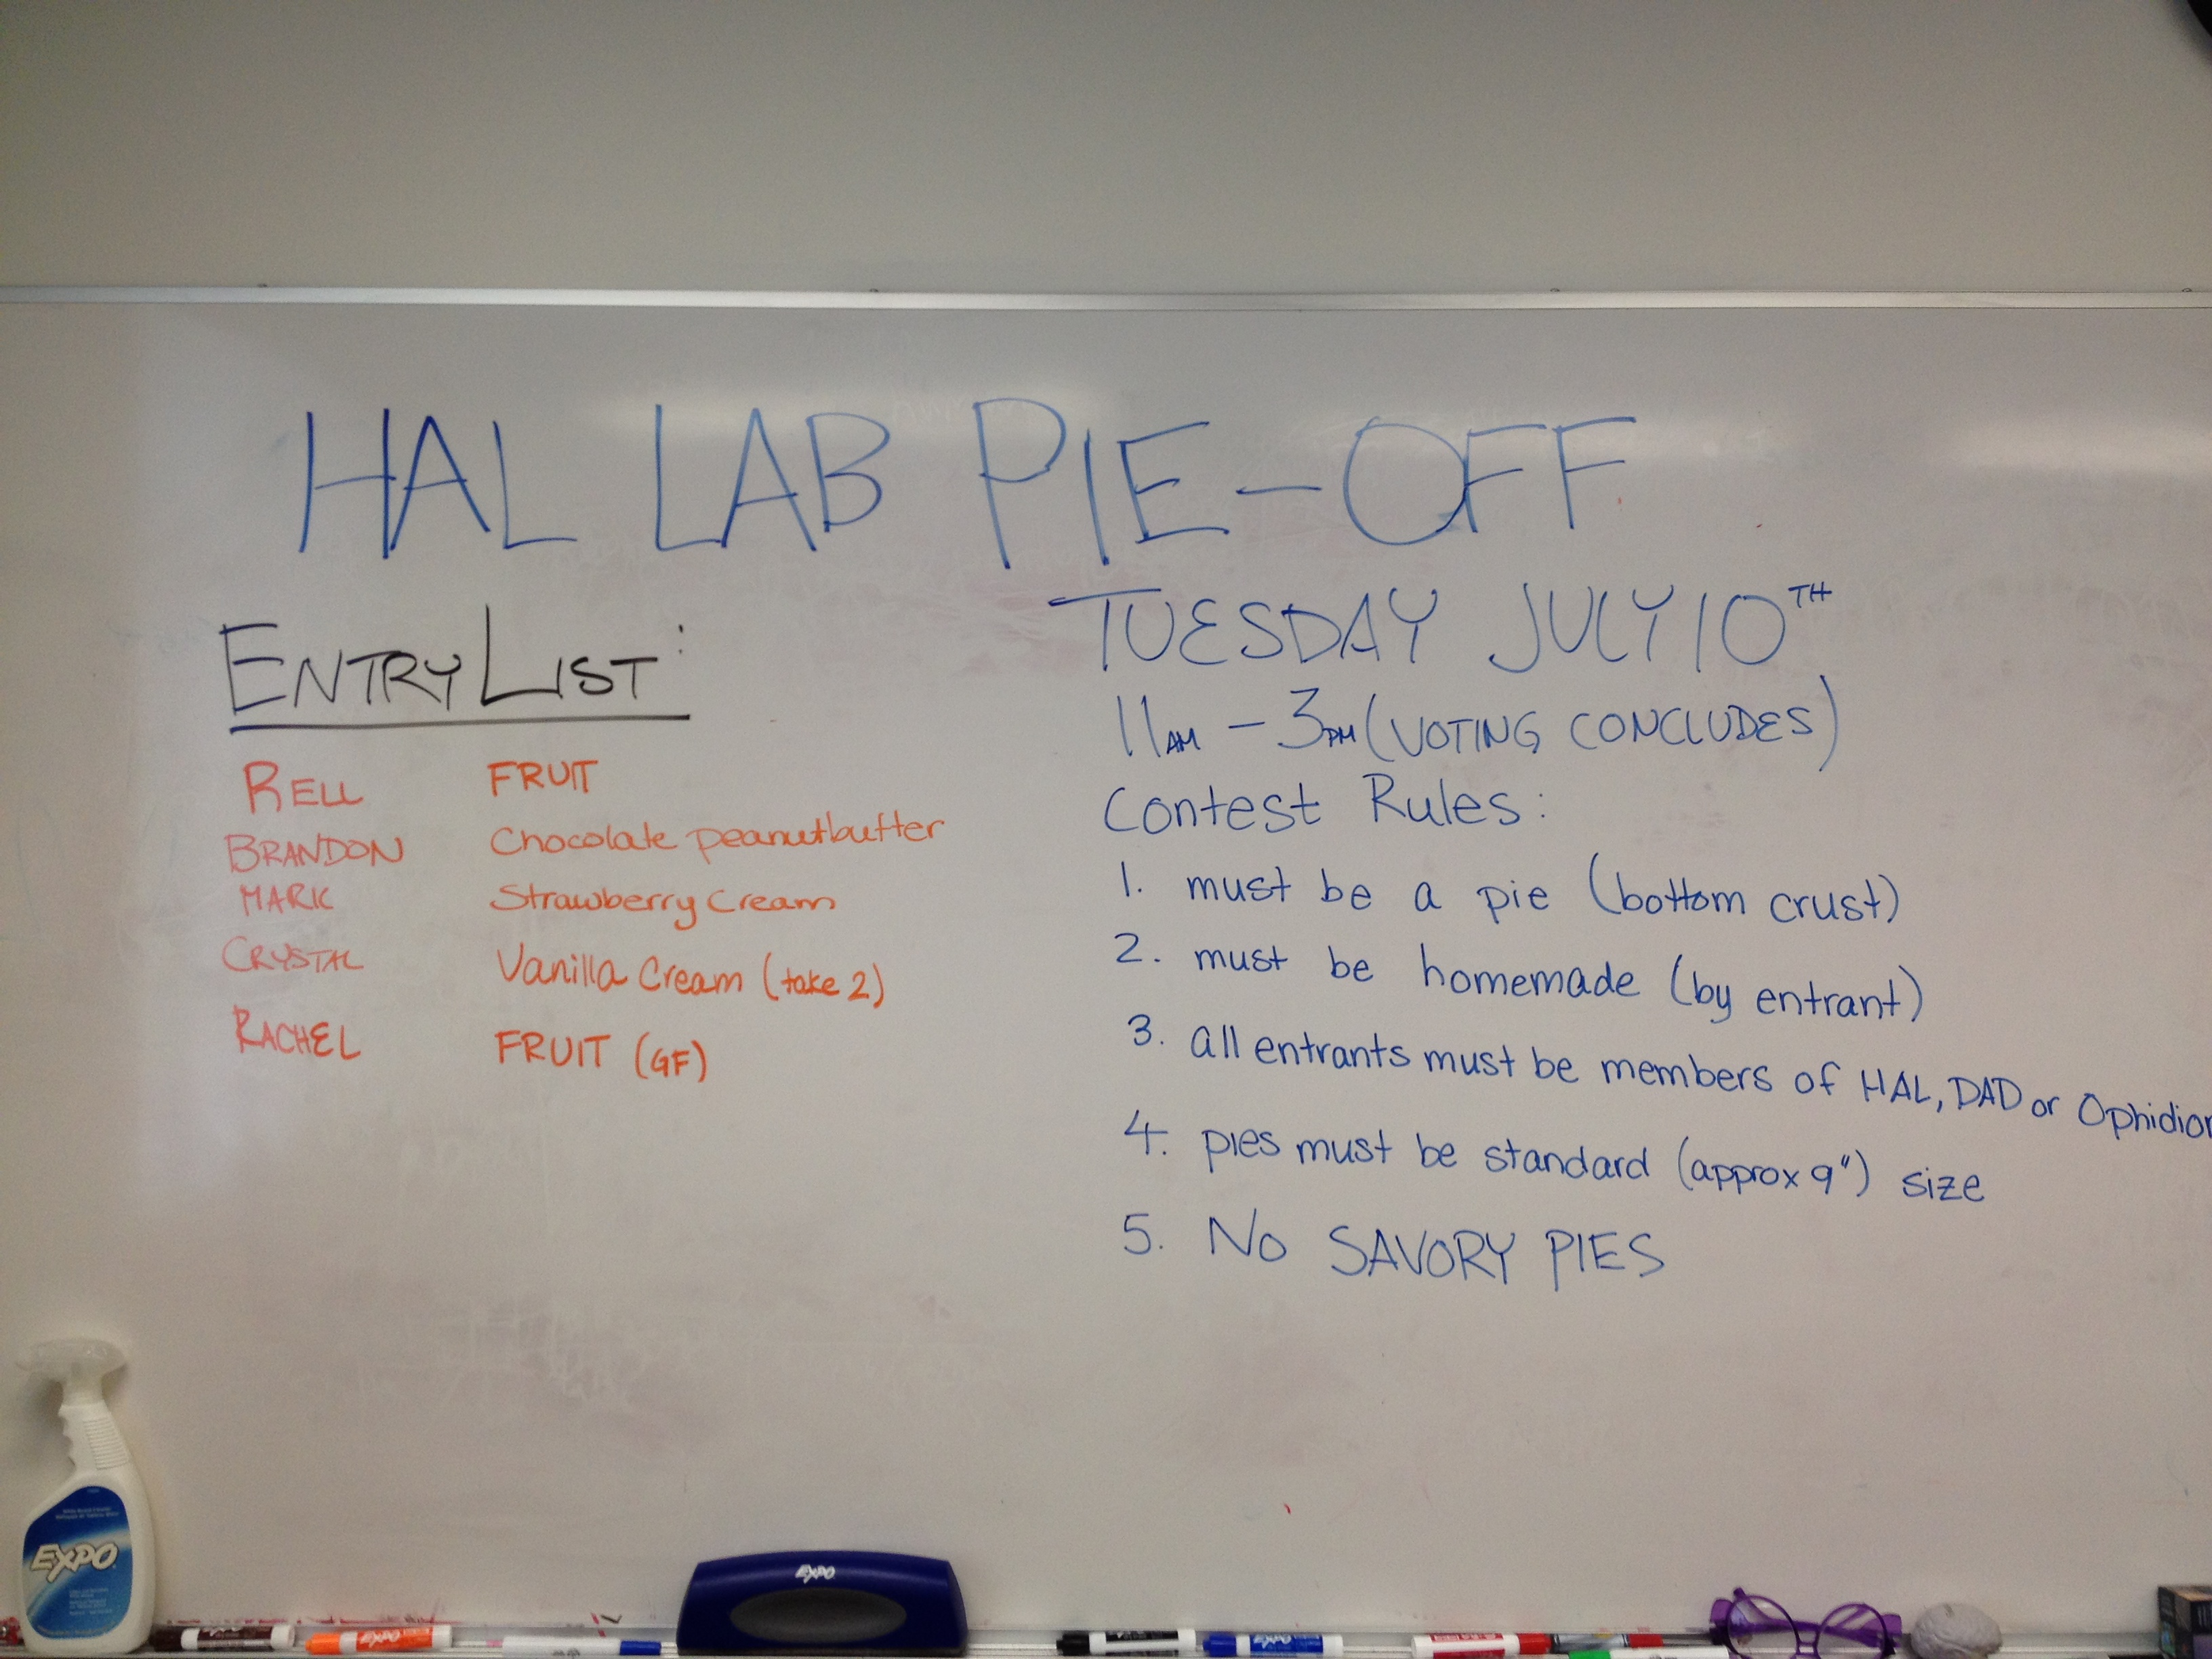 HAL LAB PIE-OFF
TUESDAY JULY 10TH
11AM - 3PM (VOTING CONCLUDES)
ENTRY LIST:
RELL FRUIT
BRANDON Chocolate peanutbutter
MARK Strawberry Cream
CRYSTAL Vanilla Cream (take 2)
RACHEL FRUIT (GF)
Contest Rules:
1. must be a pie (bottom crust)
2. must be homemade (by entrant)
3. all entrants must be members of HAL, DAD or Ophidion
4. pies must be standard (approx 9") size
5. NO SAVORY PIES
EXPO
EXPO
EXPO
EXPO